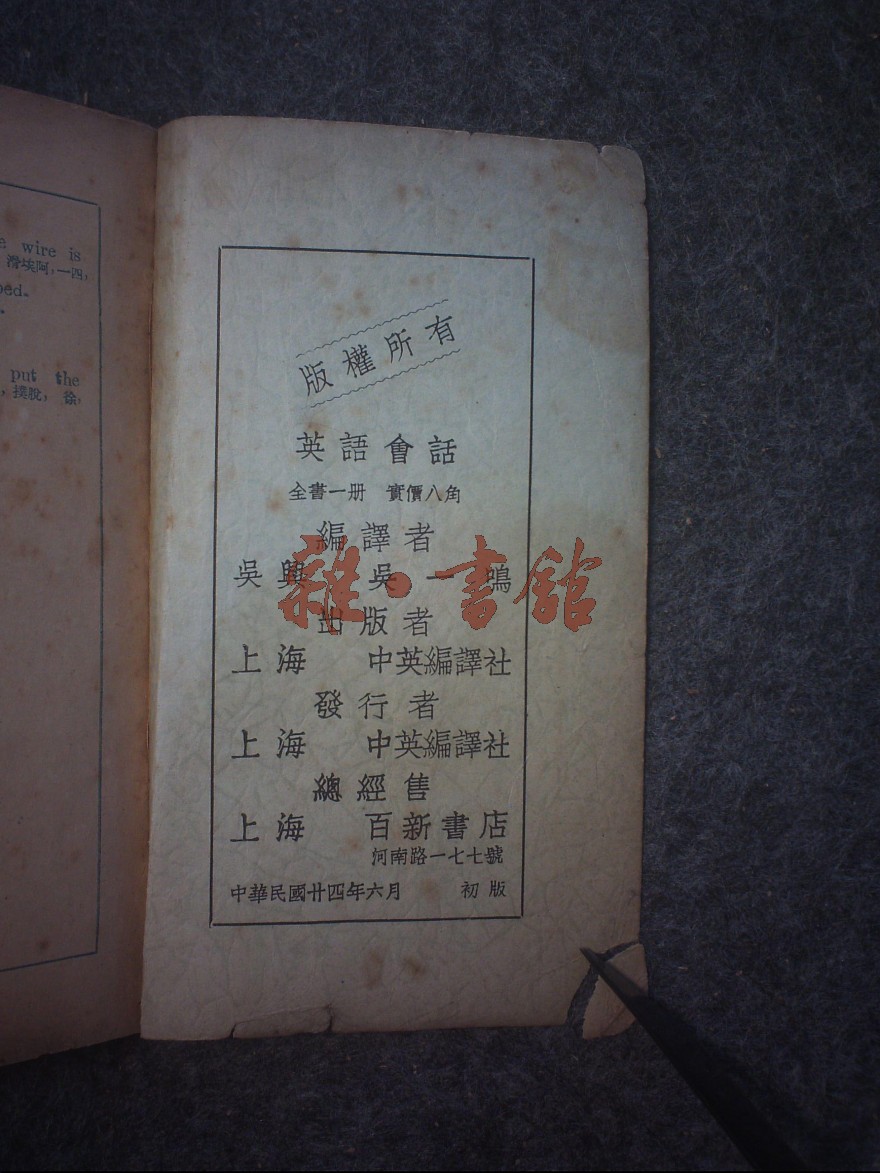 e wire is
滑埃阿,一四,
ped.
put the
撲脫, 徐,
版權所有
英語會話
全書一册 實價八角
編譯者
吳興 吳一鳴
出版者
上海 中英編譯社
發行者
上海 中英編譯社
總經售
上海 百新書店
河南路一七七號
中華民國廿四年六月 初版
雜·書館